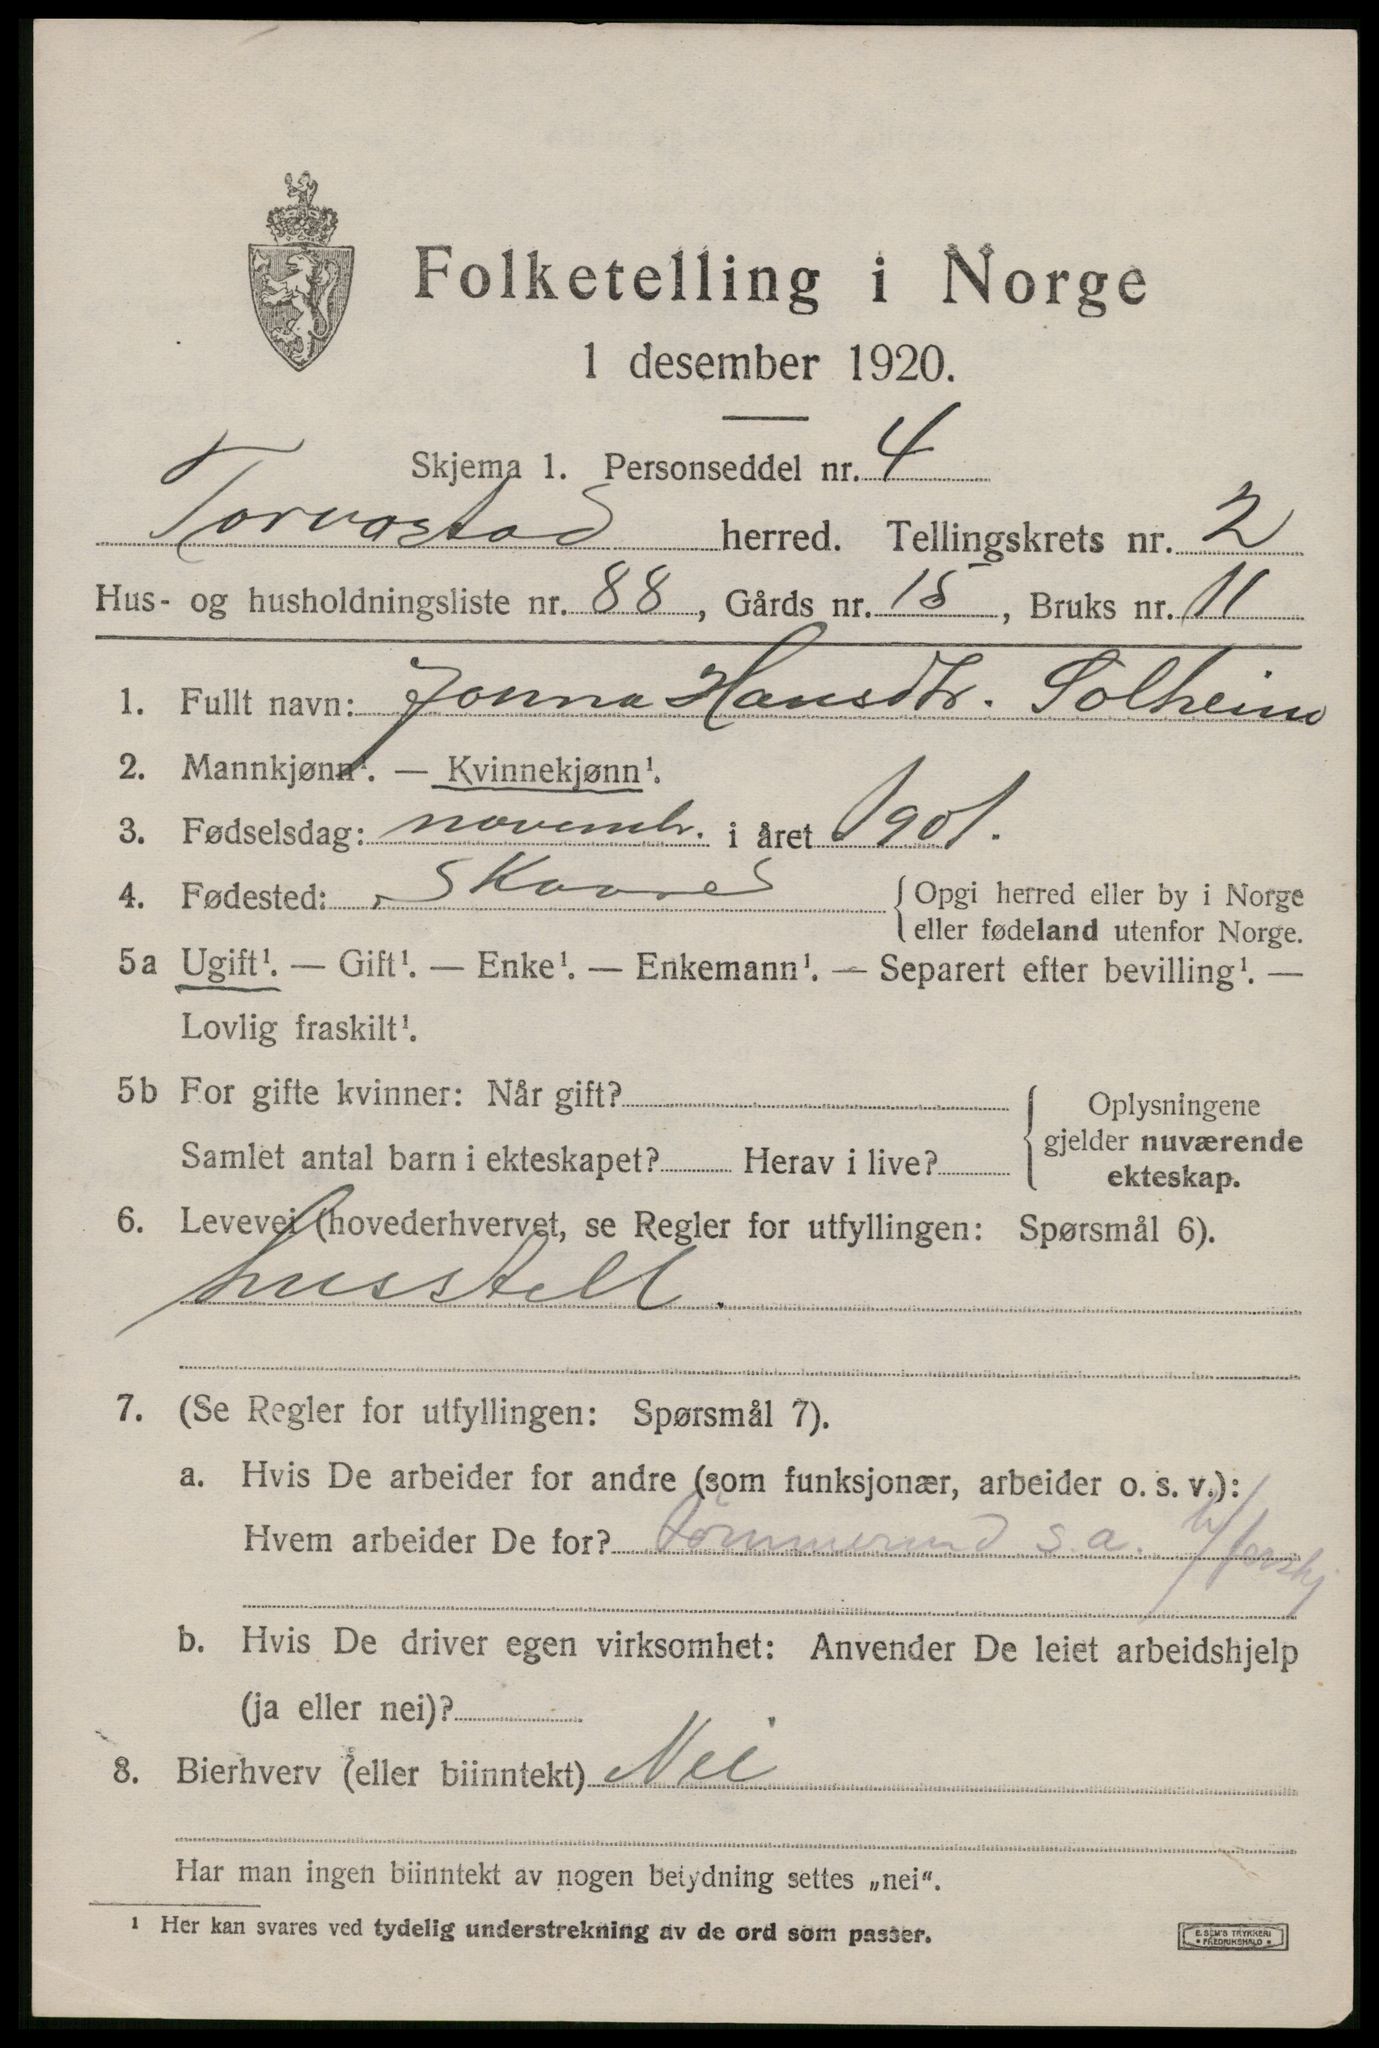 Folketelling i Norge
1 desember 1920.
Skjema 1. Personseddel nr. 4
Torvastad herred. Tellingskrets nr. 2
Hus- og husholdningsliste nr. 88, Gårds nr. 15, Bruks nr. 11
1. Fullt navn: Jonna Hansdtr. Solheim
2. Mannkjønn¹. — Kvinnekjønn¹.
3. Fødselsdag: novembr. i året 1901.
4. Fødested: Skaare
{ Opgi herred eller by i Norge
eller fødeland utenfor Norge.
5a Ugift¹. — Gift¹. — Enke¹. — Enkemann¹. — Separert efter bevilling¹. —
Lovlig fraskilt¹.
5b For gifte kvinner: Når gift?
Samlet antal barn i ekteskapet? Herav i live?
{ Oplysningene
gjelder nuværende
ekteskap.
6. Levevei (hovederhvervet, se Regler for utfyllingen: Spørsmål 6).
husstell.
7. (Se Regler for utfyllingen: Spørsmål 7).
a. Hvis De arbeider for andre (som funksjonær, arbeider o. s. v.):
Hvem arbeider De for? s.a.
b. Hvis De driver egen virksomhet: Anvender De leiet arbeidshjelp
(ja eller nei)?
8. Bierhverv (eller biinntekt) Nei
Har man ingen biinntekt av nogen betydning settes „nei“.
¹ Her kan svares ved tydelig understrekning av de ord som passer.
E. SEM'S TRYKKERI
* FREDRIKSHALD *